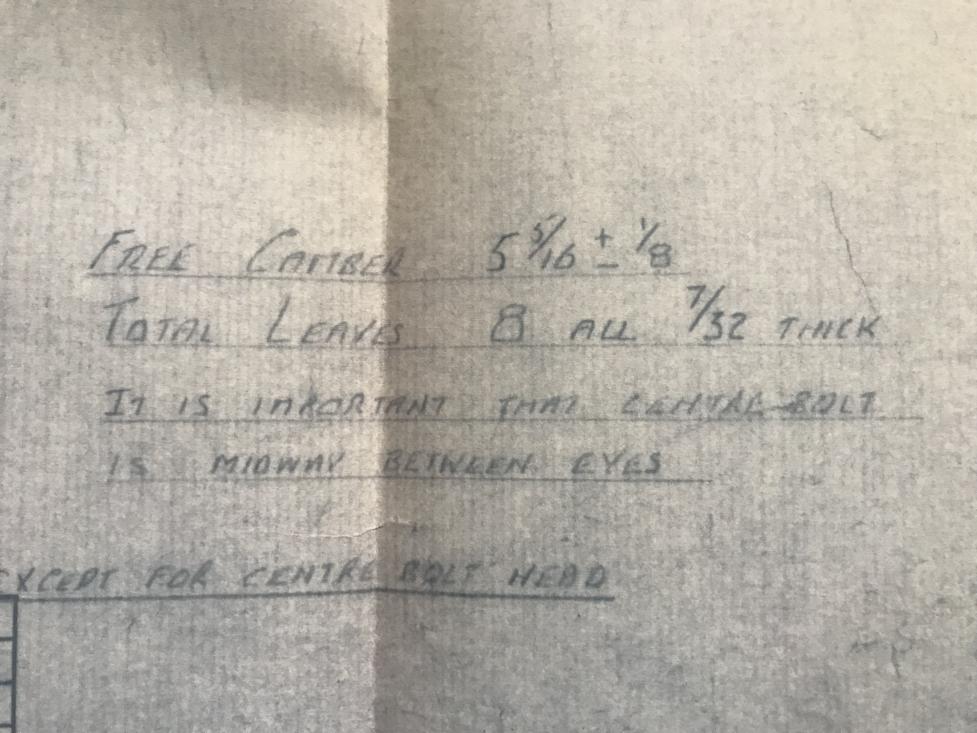 FREE CAMBER 5 5/16 ± 1/8
TOTAL LEAVES 8 ALL 7/32 THICK
IT IS IMPORTANT THAT CENTRE BOLT
IS MIDWAY BETWEEN EYES
EXCEPT FOR CENTRE BOLT HEAD